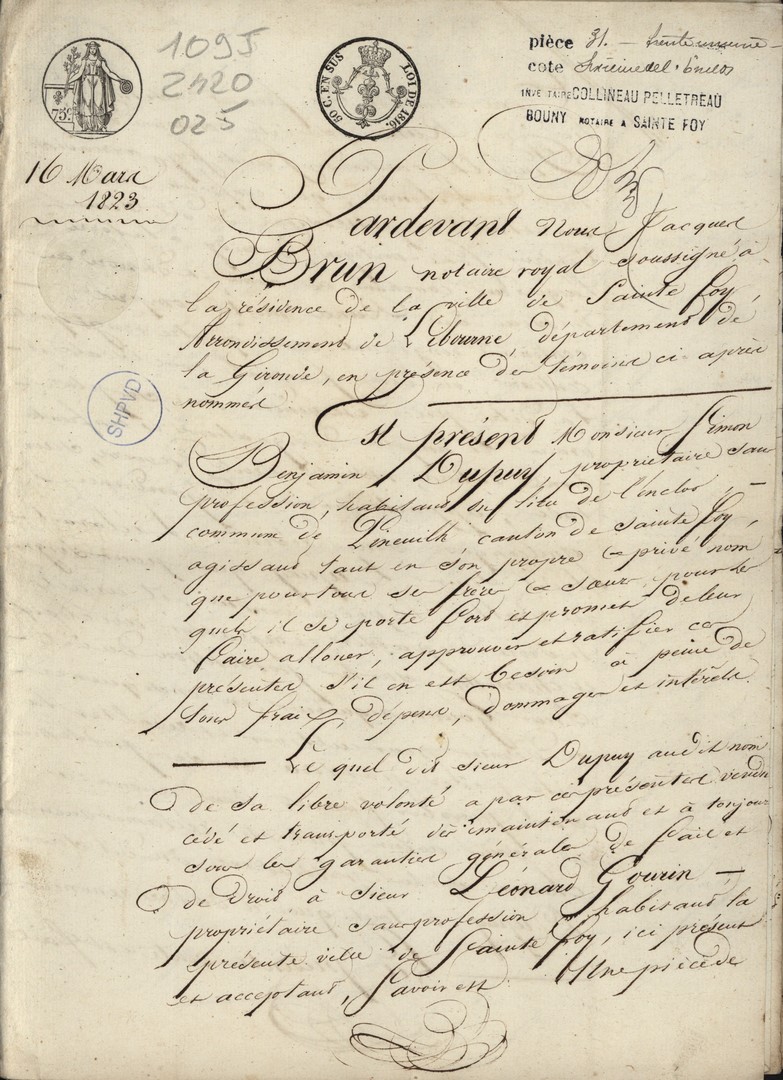 75c
1095
2420
025
50 C. EN SUS
LOI DE 1816.
pièce 31. — trente unième
cote deuxième del. Enclos
INVENTAIRE COLLINEAU PELLETREAU
BOUNY NOTAIRE A SAINTE FOY
16 Mars
1823
SHPVD
Pardevant Nous Jacques
Brun notaire royal soussigné à
la résidence de la ville de Sainte foy
Arrondissement de Libourne département de
la Gironde, en présence des témoins ci après
nommés.
Est présent Monsieur Simon
Benjamin Dupuy propriétaire sans
profession, habitant du lieu de l'Enclos, —
commune de Pineuilh canton de Sainte foy,
agissant tant en son propre & privé nom
que pour tous ses frères & sœurs pour les
quels il se porte fort et promet de leur
faire allouer, approuver et ratifier ces
présentes s'il en est besoin à peine de
tous fraix, dépens, dommages et intérêts.
— Le quel dit sieur Dupuy audit nom
de sa libre volonté a par ces présentes vendu
cédé et transporté dès maintenant et à toujours
sous les garanties générales de fait et
de droit à sieur Léonard Gourin —
propriétaire sans profession habitant la
présente ville de Sainte foy, ici présent
et acceptant, Savoir est Une pièce de